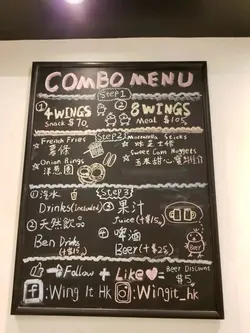 COMBO MENU
Step1
① 4WINGS ② 8WINGS
Snack $70 Meal $105
Step2
☆ French Fries
薯條
☆ Mozzarella Sticks
炸芝士條
☆ Onion Rings
洋蔥圈
☆ Sweet Corn Nuggets
粟米甜心
Step3
① 汽水
Drinks (included)
③ 果汁
Juice (+$15)
② 天然飲品
Ben Drinks
(+$15)
④ 啤酒
Beer (+$25)
Follow + Like
Beer Discount
$5
f :Wing It HK :Wingit_hk